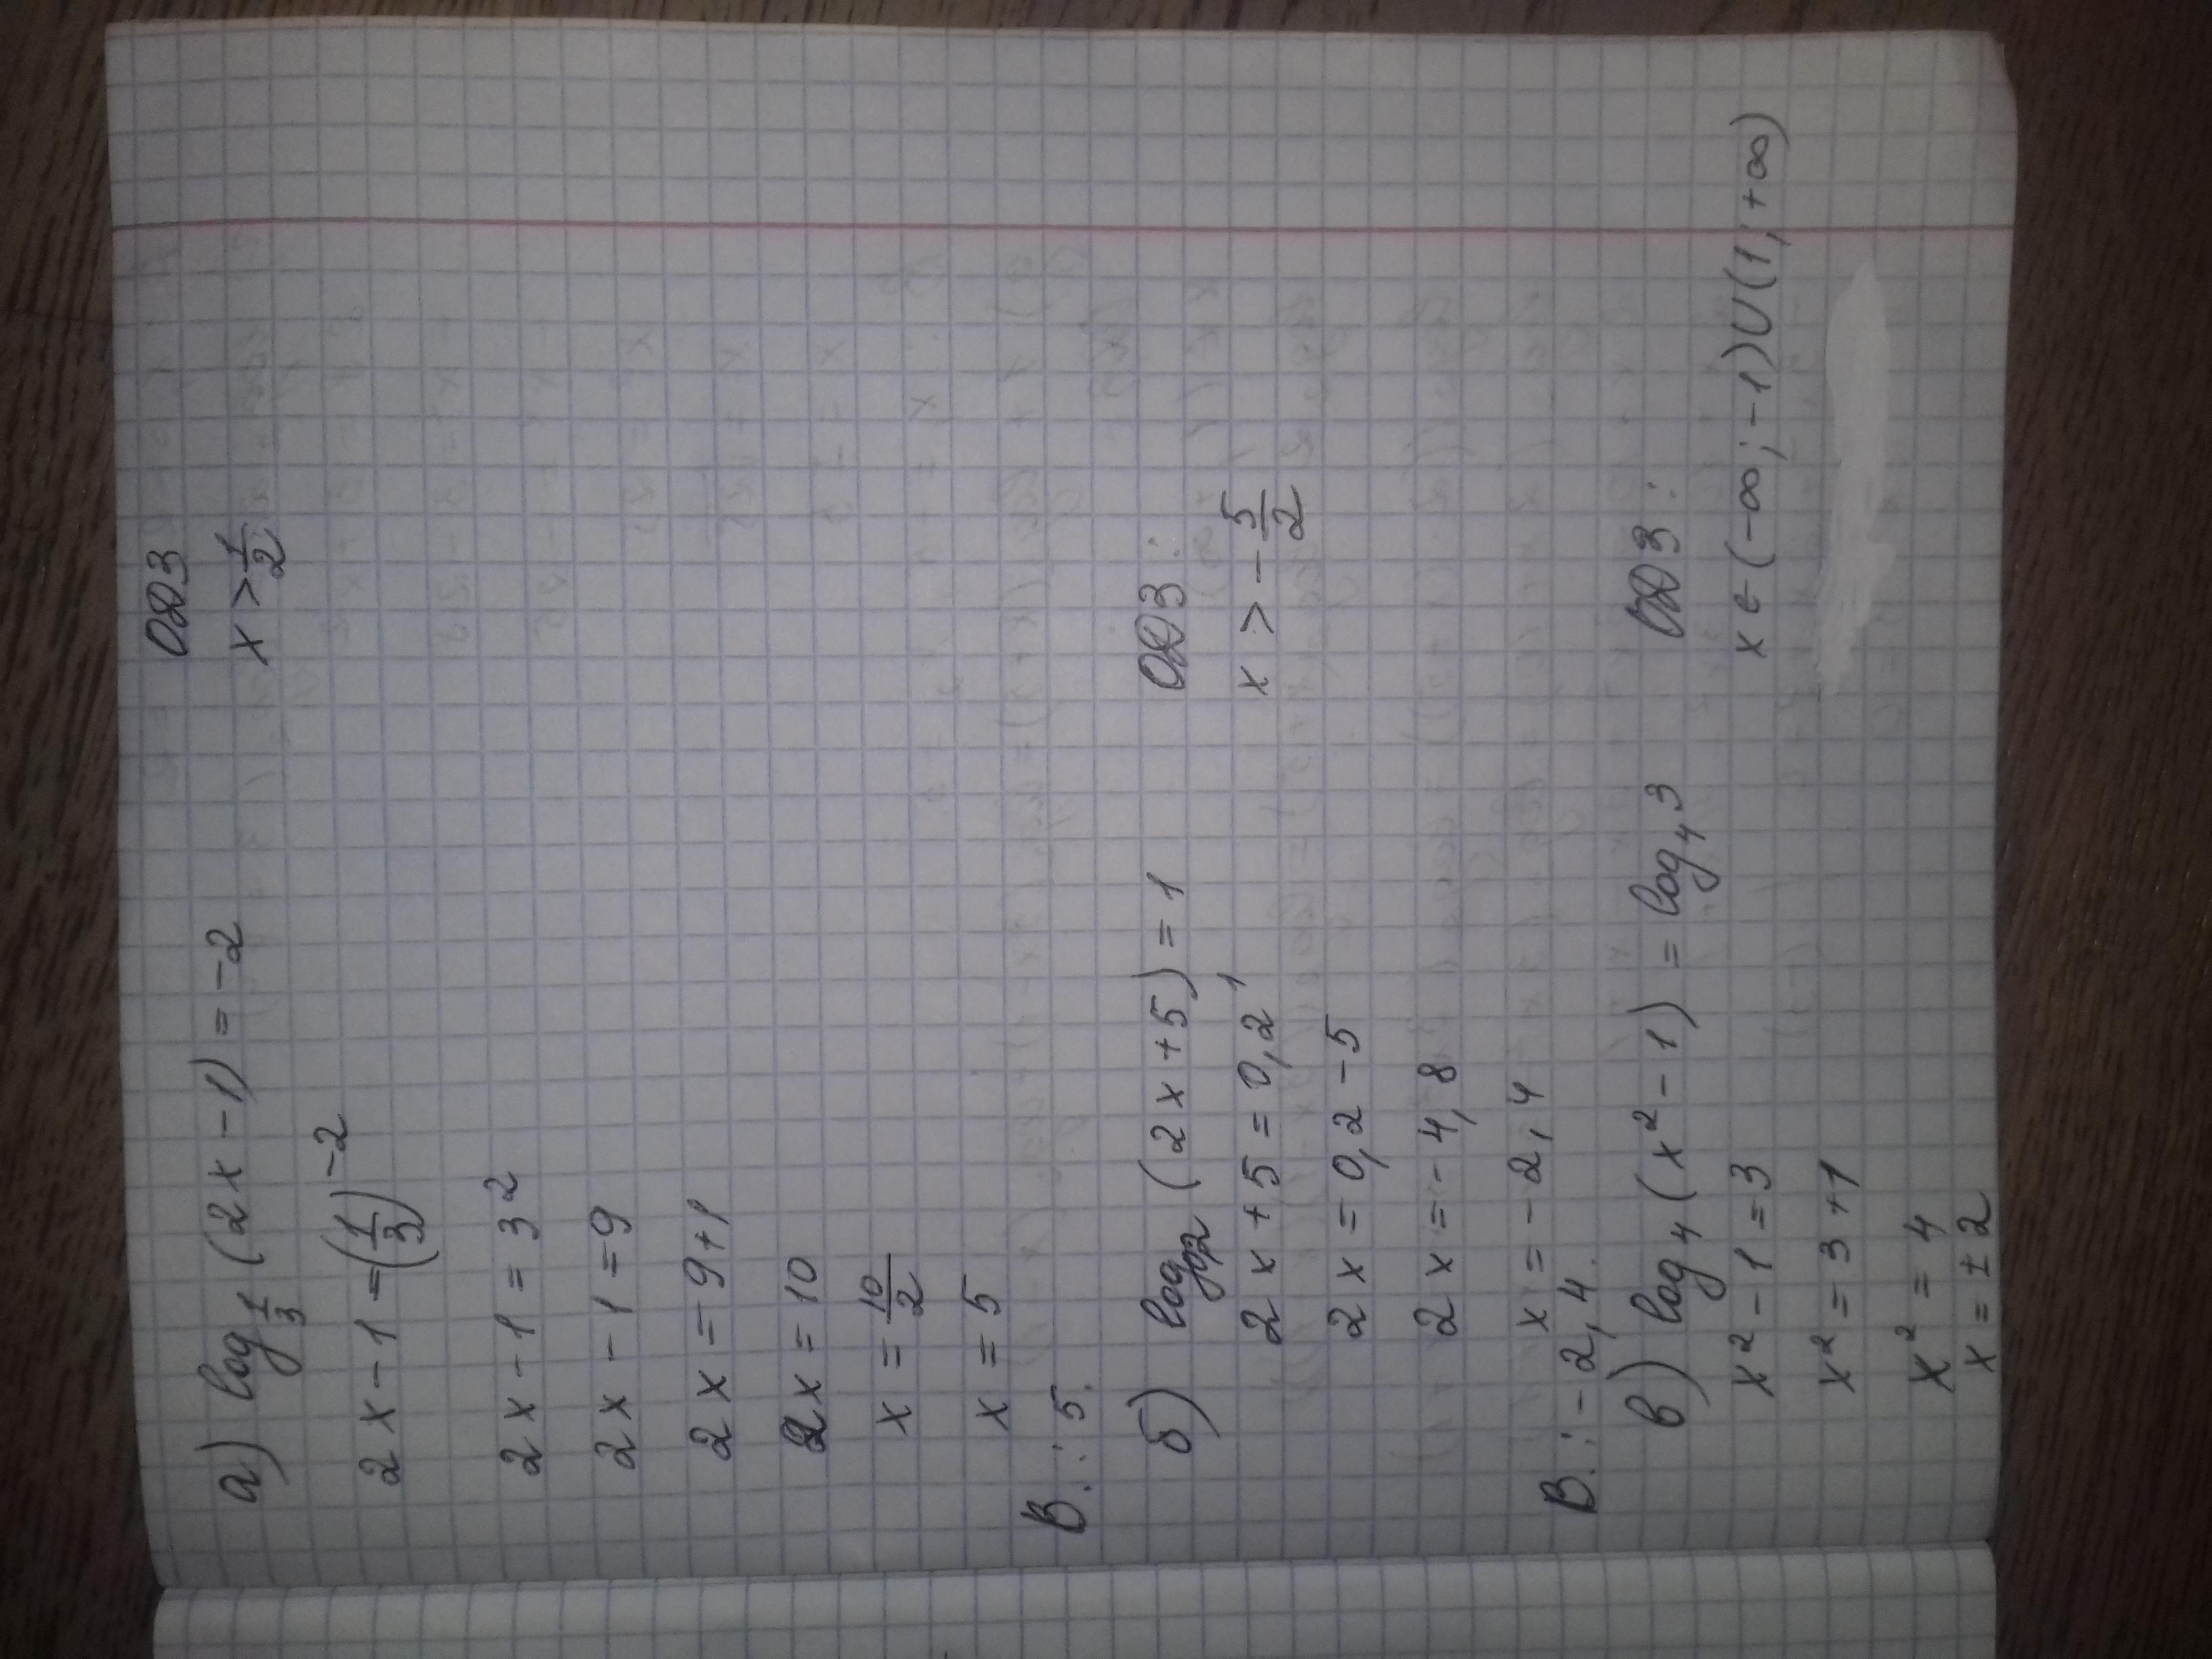 ОДЗ
а) log 1/3 (2x - 1) = -2
x > 1/2
2x - 1 = (1/3)^-2
2x - 1 = 3^2
2x - 1 = 9
2x = 9 + 1
2x = 10
x = 10/2
x = 5
В.: 5.
б) log 0,2 (2x + 5) = 1
ОДЗ:
2x + 5 = 0,2^1
x > - 5/2
2x = 0,2 - 5
2x = - 4,8
x = - 2,4
В.: - 2,4.
в) log₄ (x² - 1) = log₄ 3
ОДЗ:
x² - 1 = 3
x є (-∞; -1) U (1; +∞)
x² = 3 + 1
x² = 4
x = ± 2